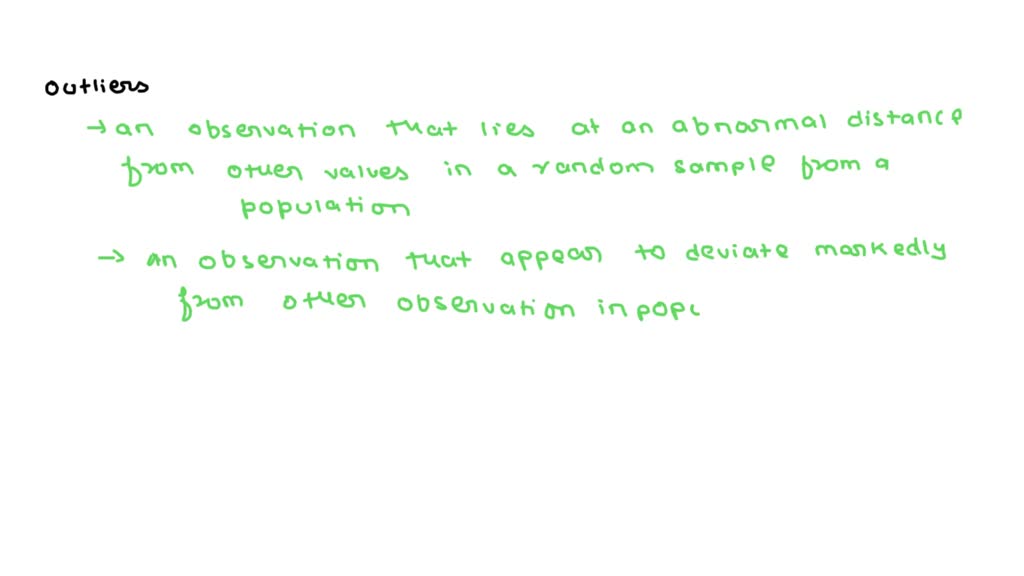 outliers
→ an observation that lies at an abnormal distance
from other values in a random sample from a
population
→ an observation that appear to deviate markedly
from other observation in pop